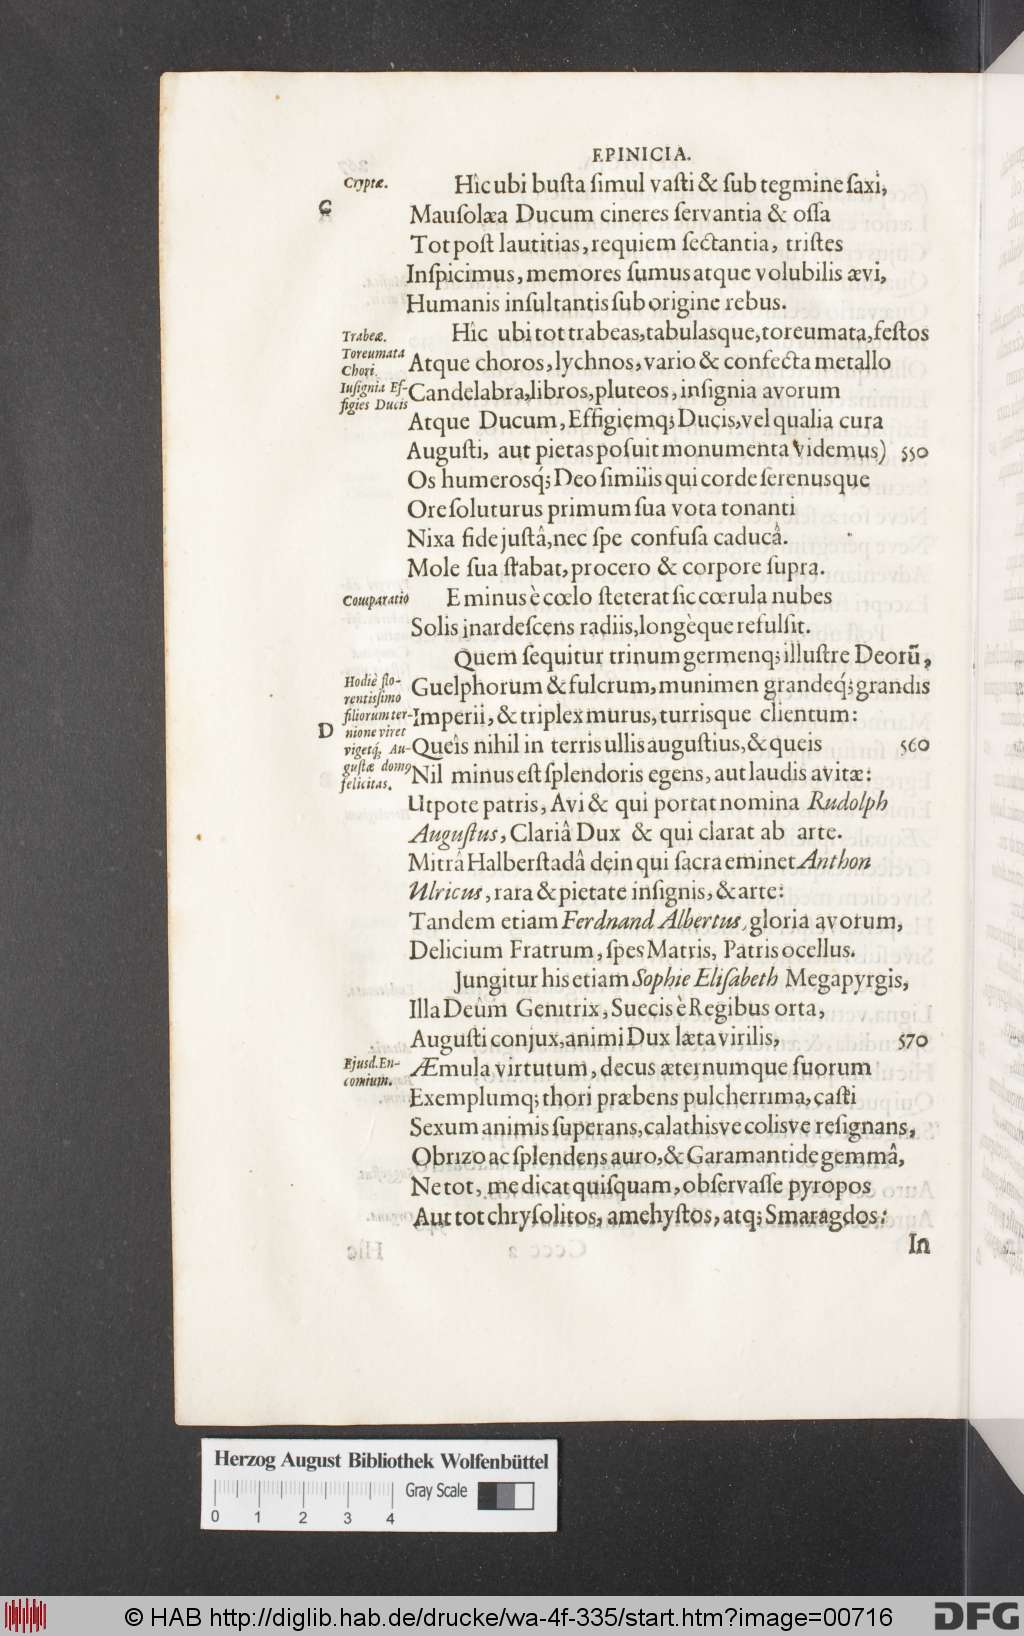 EPINICIA.
Cryptæ.
Hîc ubi busta simul vasti & sub tegmine saxi,
C
Mausolæa Ducum cineres servantia & ossa
Tot post lautitias, requiem sectantia, tristes
Inspicimus, memores sumus atque volubilis ævi,
Humanis insultantis sub origine rebus.
Trabeæ.
Hîc ubi tot trabeas, tabulasque, toreumata, festos
Toreumata
Chori.
Atque choros, lychnos, vario & confecta metallo
Insignia Ef-
figies Ducis
Candelabra, libros, pluteos, insignia avorum
Atque Ducum, Effigiemq; Ducis, vel qualia cura
Augusti, aut pietas posuit monumenta videmus) 550
Os humerosq́; Deo similis qui corde serenusque
Ore soluturus primum sua vota tonanti
Nixa fide justâ, nec spe confusa caducâ.
Mole sua stabat, procero & corpore supra.
Comparatio
Eminus è cœlo steterat sic cœrula nubes
Solis inardescens radiis, longèque refulsit.
Quem sequitur trinum germenq; illustre Deorū,
Hodiè flo-
rentissimo
filiorum ter-
nione viret
vigetq́, Au-
gustæ domꝰ
felicitas.
Guelphorum & fulcrum, munimen grandeq́; grandis
D
Imperii, & triplex murus, turrisque clientum:
Queîs nihil in terris ullis augustius, & queis 560
Nil minus est splendoris egens, aut laudis avitæ:
Utpote patris, Avi & qui portat nomina Rudolph
Augustus, Clariâ Dux & qui clarat ab arte.
Mitrâ Halberstadâ dein qui sacra eminet Anthon
Ulricus, rara & pietate insignis, & arte:
Tandem etiam Ferdnand Albertus, gloria avorum,
Delicium Fratrum, spes Matris, Patris ocellus.
Jungitur his etiam Sophie Elisabeth Megapyrgis,
Illa Deûm Genitrix, Suecis è Regibus orta,
Augusti conjux, animi Dux læta virilis, 570
Ejusd. En-
comium.
Æmula virtutum, decus æternumque suorum
Exemplumq; thori præbens pulcherrima, casti
Sexum animis superans, calathisve colisve resignans,
Obrizo ac splendens auro, & Garamantide gemmâ,
Ne tot, me dicat quisquam, observasse pyropos
Aut tot chrysolitos, amehystos, atq; Smaragdos:
In
Herzog August Bibliothek Wolfenbüttel
Gray Scale
0 1 2 3 4
© HAB http://diglib.hab.de/drucke/wa-4f-335/start.htm?image=00716
DFG